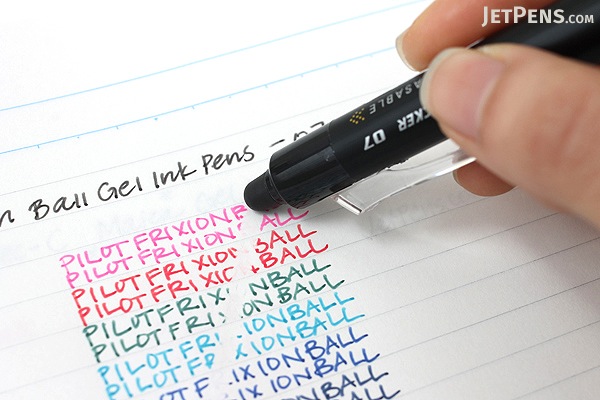 JETPENS.COM
ASABLE
CKER 07
n Ball Gel Ink Pens - 07
PILOT FRIXION B
PILOT FRIXION ALL
PILOT FRIXION BALL
PILOT FRIXIO BALL
PILOT FRIX NBALL
PILOT FRI ONBALL
PILOT FR IONBALL
PILOT F IONBALL
OT F IXIONBALL
IXIONBALL
NBALL